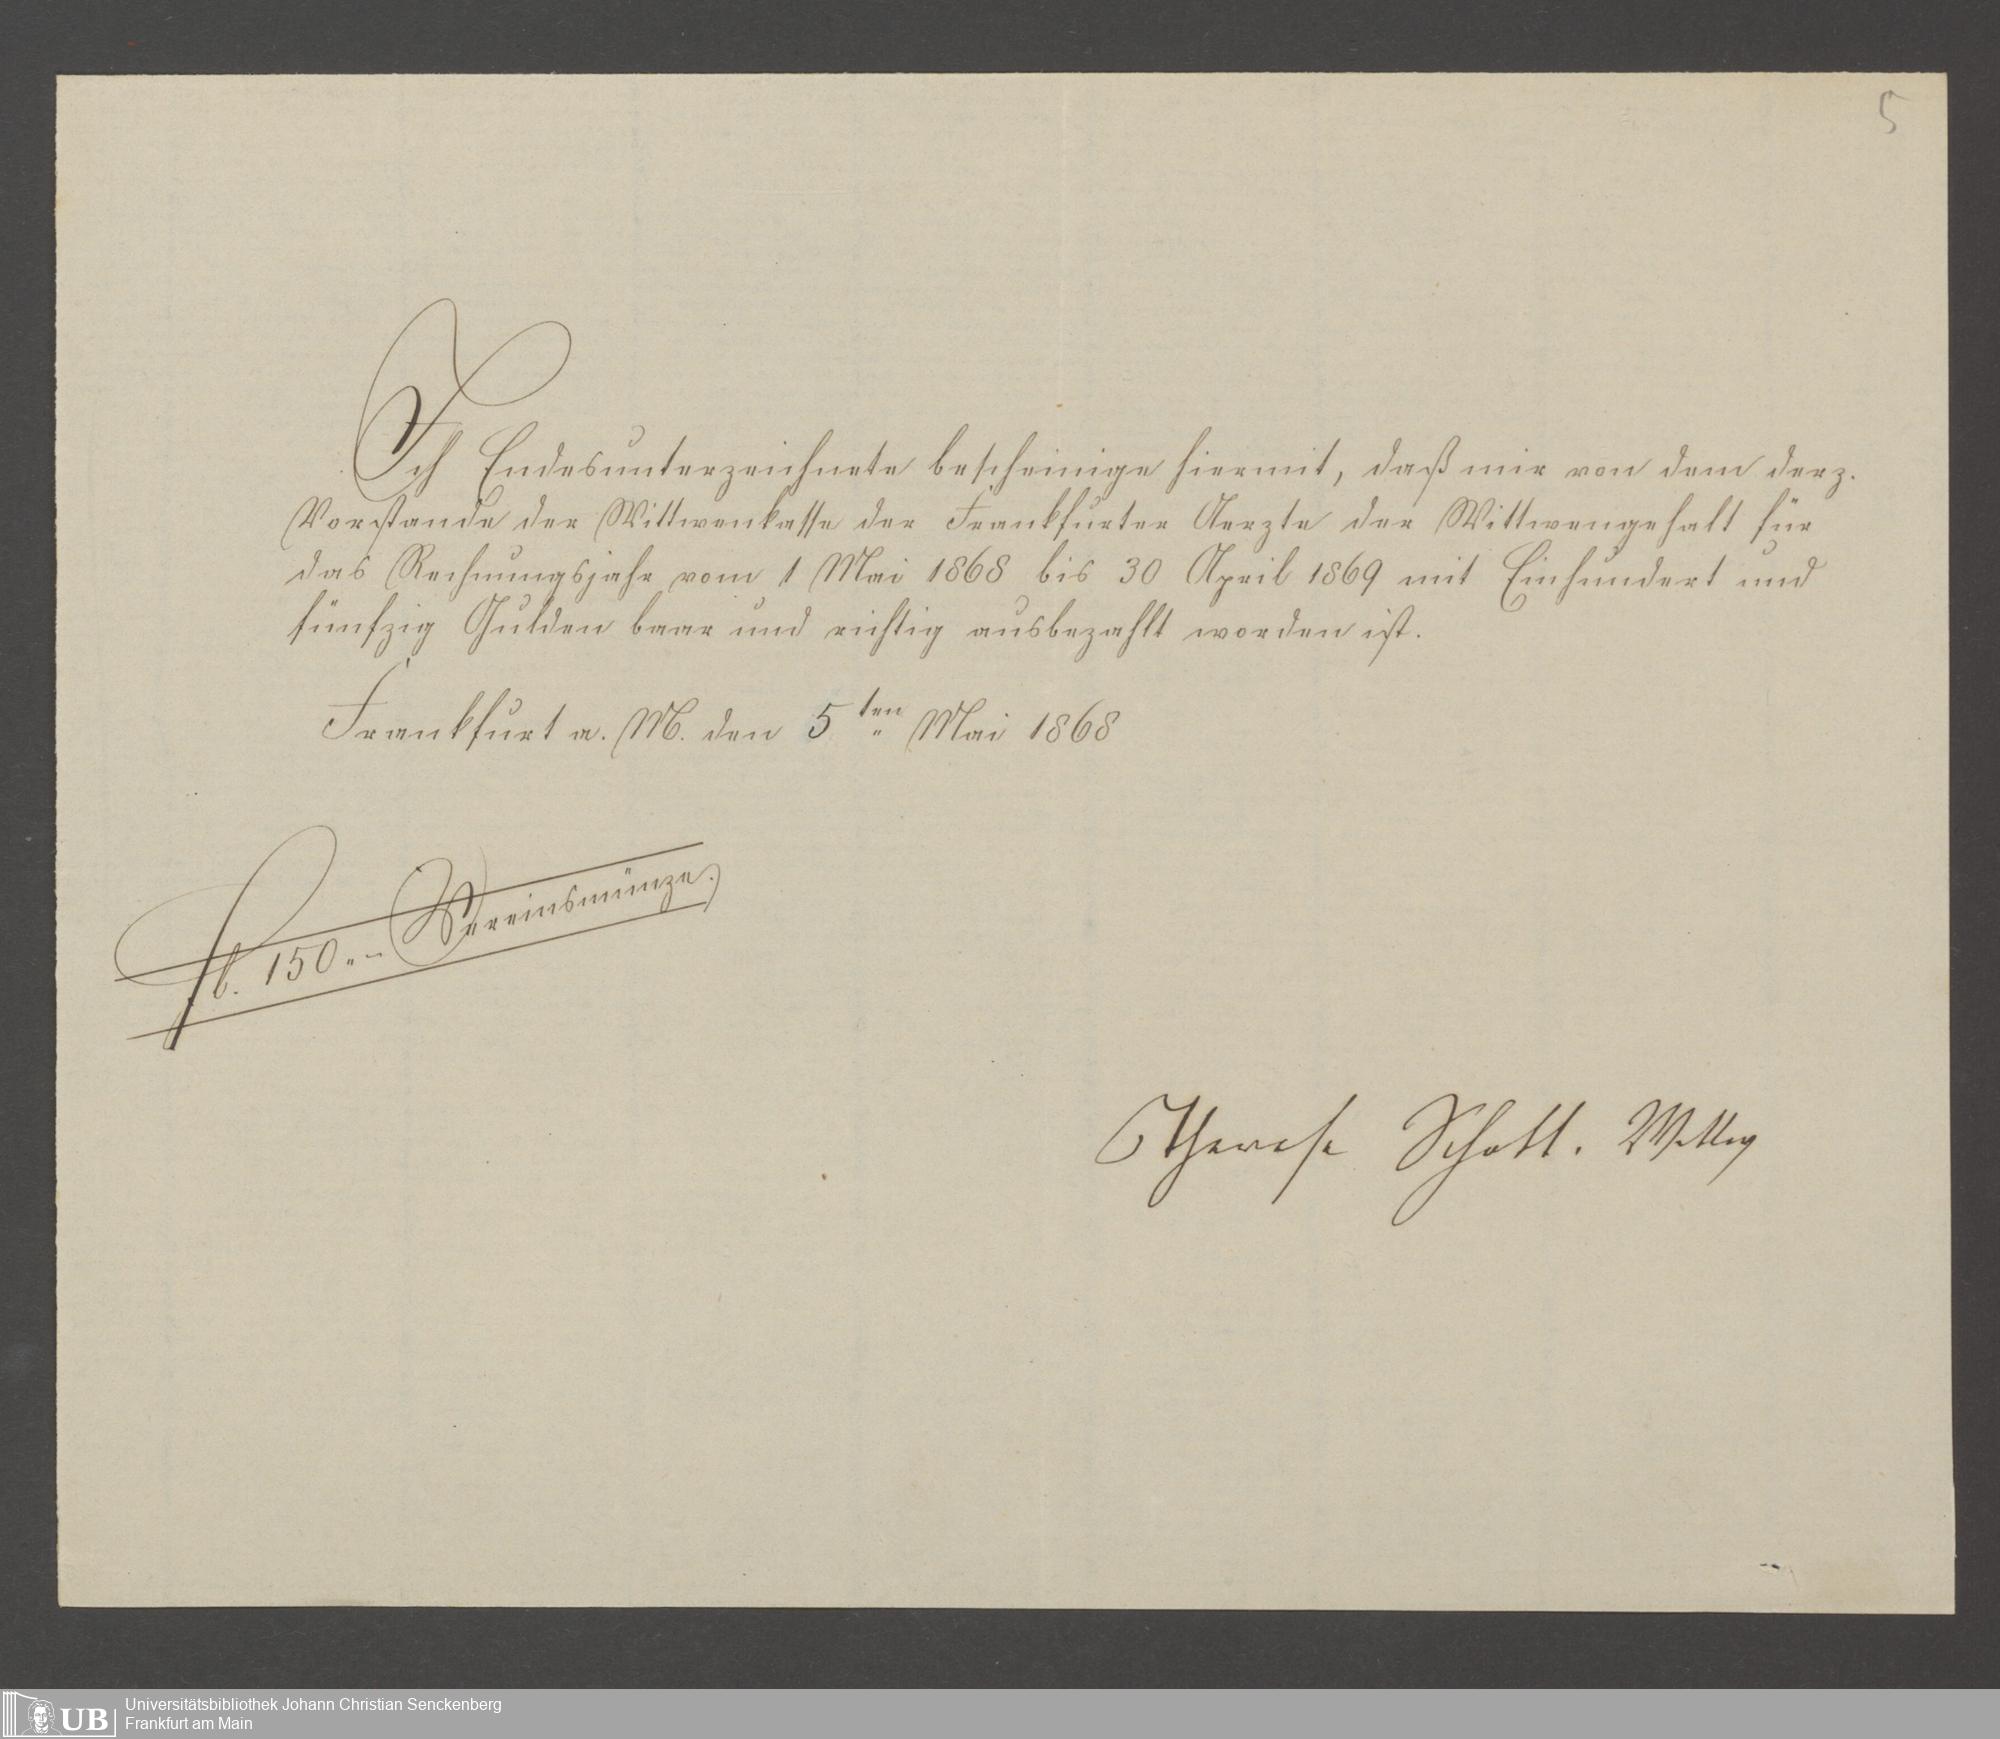 5
Ich Endesunterzeichnete bescheinige hiermit, daß mir von dem derz.
Vorstande der Wittwenkasse der Frankfurter Aerzte der Wittwengehalt für
das Rechnungsjahr vom 1 Mai 1868 bis 30 April 1869 mit Einhundert und
fünfzig Gulden baar und richtig ausbezahlt worden ist.
Frankfurt a. M. den 5ten Mai 1868
fl. 150 „ – Vereinsmünze.
Therese Schott.
UB
Universitätsbibliothek Johann Christian Senckenberg
Frankfurt am Main